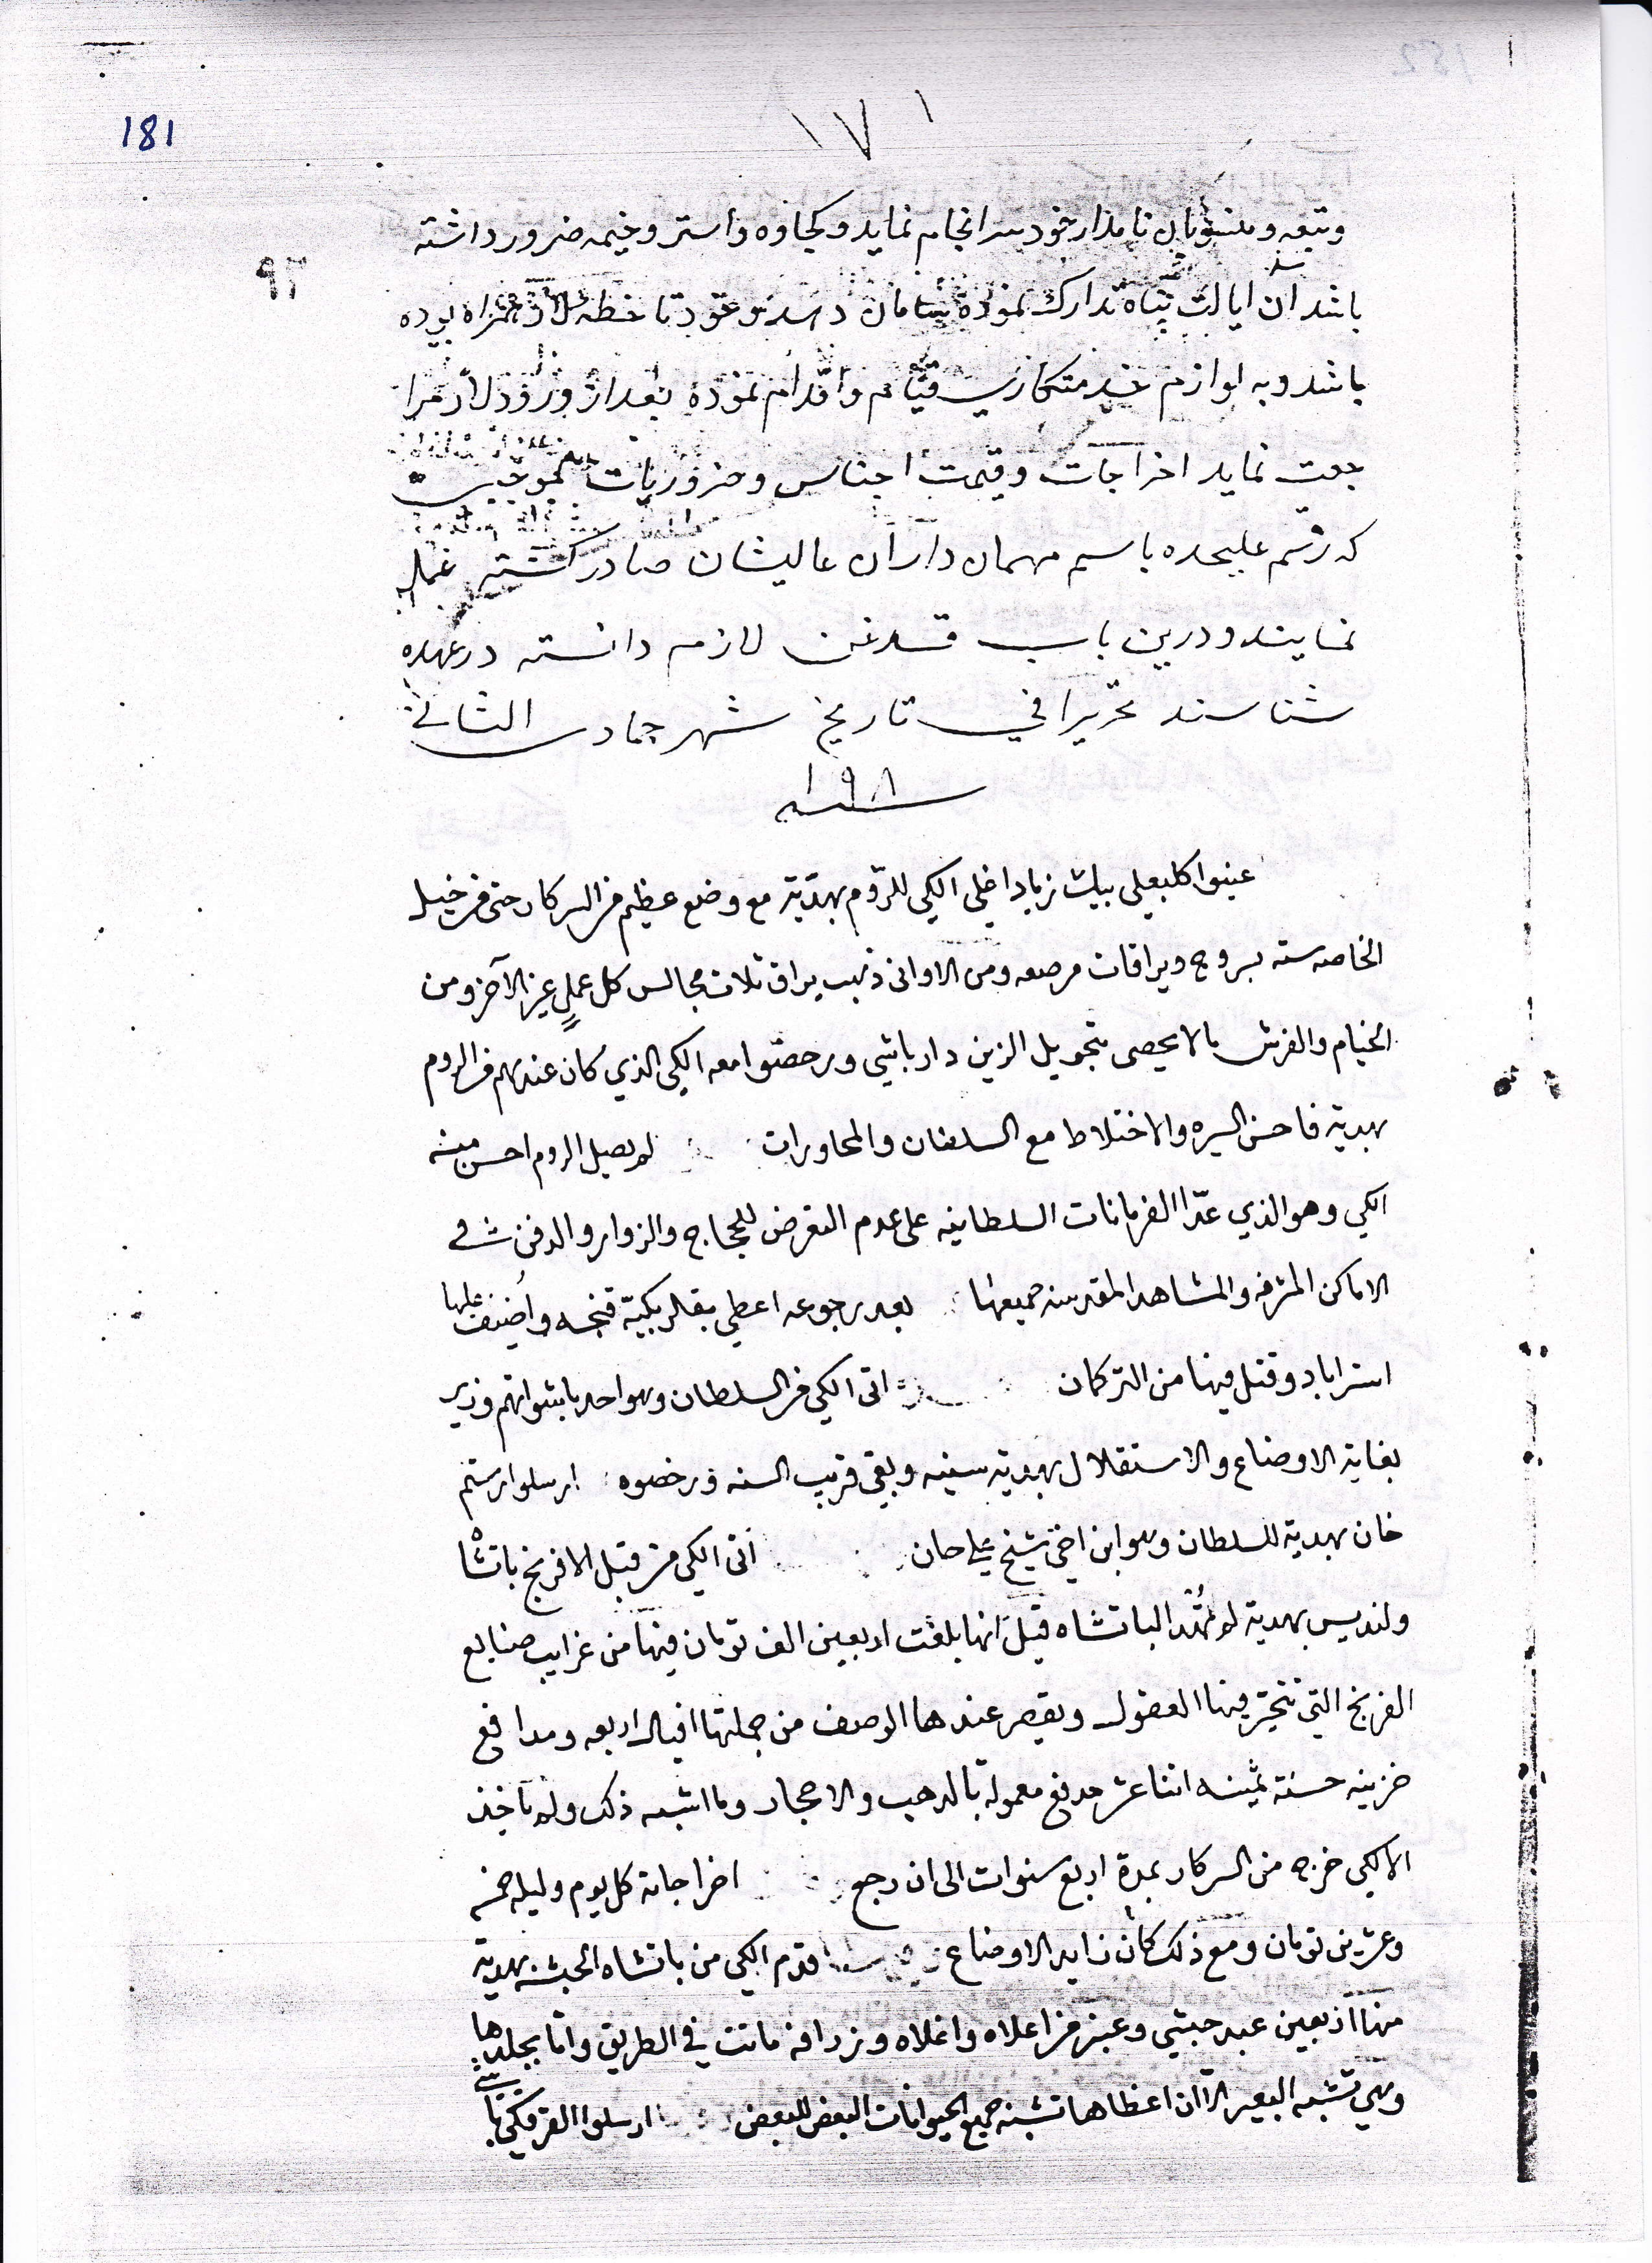 181
١٧١
وتبعه ومنسوبان نامدار خود سرانجام نماید وکجاوه واستر وخیمه ضرور داشته
٩٣
باشد ان ایالت پناه تدارک نموده بسامان تا خطه لار همراه بوده
باشد وبه لوازم خدمتکاري قیام واقدام نموده بعد از ورود لار مرا
جعت نماید اخراجات وقیمت اجناس وضروریات بموجبی
که رقم علیحده باسم مهمان داران عالیشان صادر کشته عمل
نمایند ودرین باب قدغن لازم دانسته درعهده
شناسند تحریرا في تاریخ شهر جمادی الثاني
سنه ١٩٨
عینوا کلبعلي بیك زیاد اغلي الكي للروم بهدية مع وضع عظيم من السركار حتى من خيل
الخاصه سته بسروج ويراقات مرصعه ومن الاواني ذهب يراق ثلاث مجالس كل عمل غير الآخر ومن
الخيام والفرش مالا يحصى بتحويل الزين دار باشي ورخصوا معه الكي الذي كان عندهم من الروم
بهدية فاحسن السيره والاختلاط مع السلطان والمحاورات لم يصل الروم احسن منه
الكي وهو الذي عدا الفرمانات السلطانيه على عدم التعرض للحجاج والزوار والدفن في
الاماكن المشرفه والمشاهد المقدسه جميعها بعد رجوعه اعطي بقلربكية قنجه واضيف عليها
استراباد وقتل فيها من التركمان اتى الكي من السلطان وهو احد باشواتهم وزير
بغاية الاوضاع والاستقلال بهدية سنيه وبقي قريب السنه ورخصوه ارسلوا رستم
خان بهدية للسلطان وهو ابن اخي شيخ علي خان اتى الكي من قبل الافرنج باتشا
ولنديس بهدية لم تهد الباتشاه قيل انها بلغت اربعين الف تومان فيها من غرايب صنايع
الفرنج التي تتحير فيها العقول ويقصر عندها الوصف من جملتها افيال اربعه ومدافع
خزينه حسنة ثمينه اثنا عشر مدفع معمولة بالذهب والاحجار وما اشبه ذلك ولم ياخذ
الالكي خرج من السركار بمدة اربع سنوات الى ان رجع اخراجاته كل يوم وليله خمسه
وعشرين تومان ومع ذلك كان زايد الاوضاع قدم الكي من باتشاه الحبشه بهدية
منها اربعين عبد حبشي وعنبر من اعلاه واغلاه وزرافه ماتت في الطريق واتا بجلدها
وهي تشبه البعير الا ان اعظاها تشبه جميع الحيوانات البعض للبعض ارسلوا القرقكي باشي